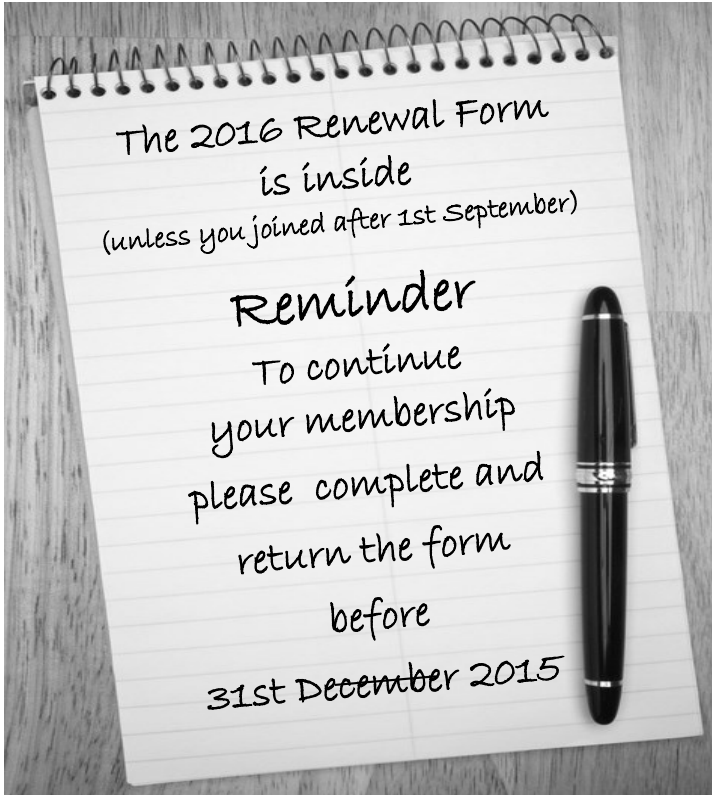 The 2016 Renewal Form
is inside
(unless you joined after 1st September)
Reminder
To continue
your membership
please complete and
return the form
before
31st December 2015